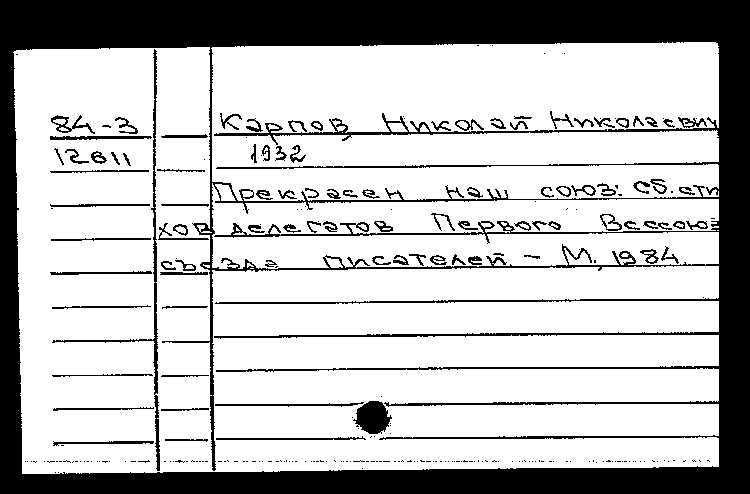 84-3 Карпов, Николай Николаевич
12611 1932
Прекрасен наш союз: Сб. сти
хов делегатов Первого Всесоюз
съезда писателей. - М., 1984.